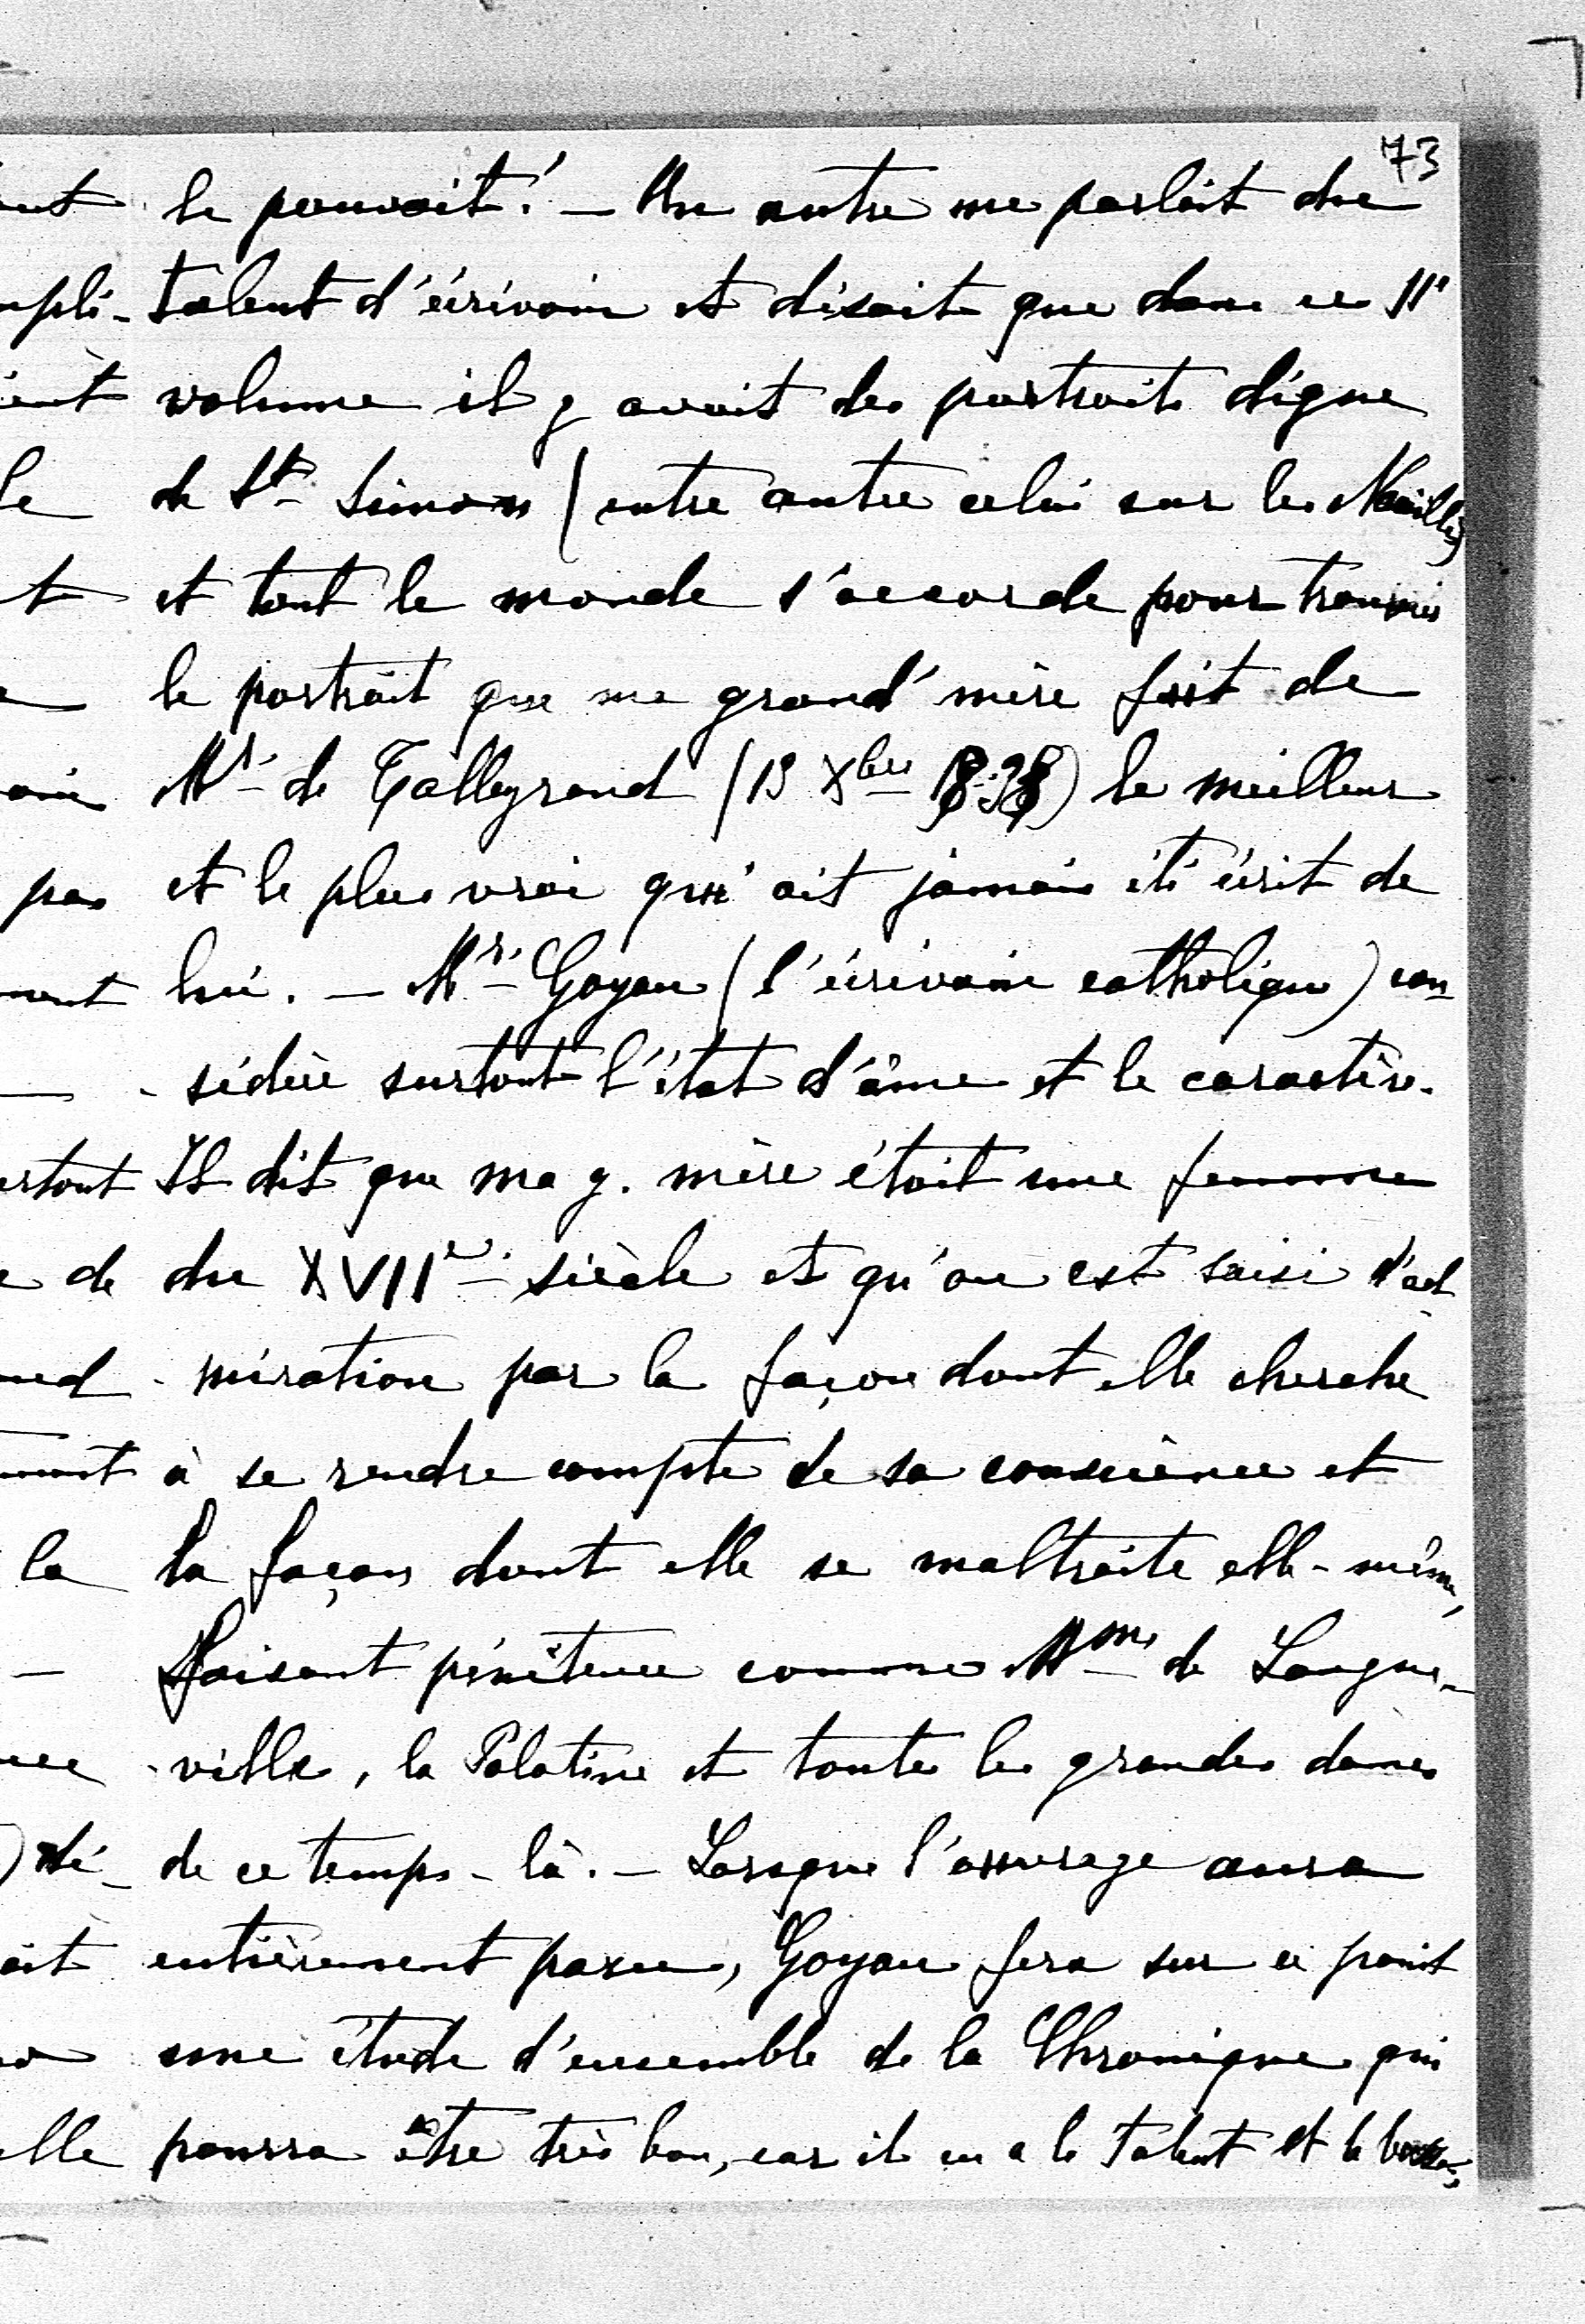 73
le pouvait! — Un autre me parlait du
talent d'écrivain et disait que dans ce II'
volume il y avait des portraits digne
de St Simon (entre autre celui sur les Noailles)
et tout le monde s'accorde pour trouver
le portrait que ma grand'mère fait de
Mr de Talleyrand (13 Xbre 1838) le meilleur
et le plus vrai qui ait jamais été écrit de
lui. — Mr Goyau (l'écrivain catholique) con-
-sidère surtout l'état d'âme et le caractère.
Il dit que ma g. mère était une femme
du XVIIe siècle et qu'on est saisi d'ad-
-miration par la façon dont elle cherche
à se rendre compte de sa conscience et
la façon dont elle se maltraite elle-même,
faisant pénitence comme Mme de Longue-
-ville, la Palatine et toutes les grandes dames
de ce temps-là. — Lorsque l'ouvrage aura
entièrement paru, Goyau fera sur ce point
une étude d'ensemble de la Chronique qui
pourra être très bon, car il en a le talent et la